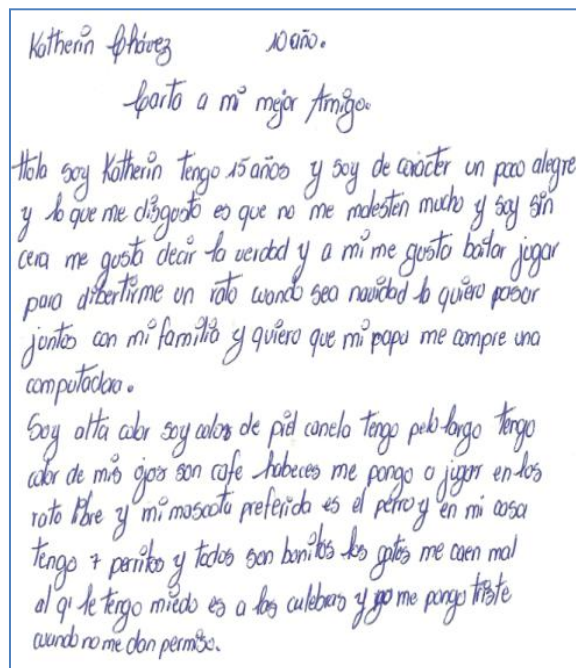 Katherin Chávez 10 año.
Carta a mi mejor Amigo.
Hola soy Katherin tengo 15 años y soy de carácter un poco alegre
y lo que me disgusta es que no me molesten mucho y soy sin
cera me gusta decir la verdad y a mi me gusta bailar jugar
para dibertirme un rato cuando sea navidad lo quiero pasar
juntos con mi familia y quiero que mi papa me compre una
computadora.
Soy alta color soy color de piel canela tengo pelo largo tengo
color de mis ojos son cafe habeces me pongo a jugar en los
rato libre y mi mascota preferida es el perro y en mi casa
tengo 7 perritos y todos son bonitos los gatos me caen mal
al qi le tengo miedo es a las culebras y yo me pongo triste
cuando no me dan permiso.